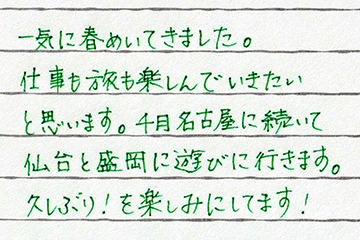 一気に春めいてきました。
仕事も旅も楽しんでいきたい
と思います。4月名古屋に続いて
仙台と盛岡に遊びに行きます。
久しぶり！を楽しみにしてます！